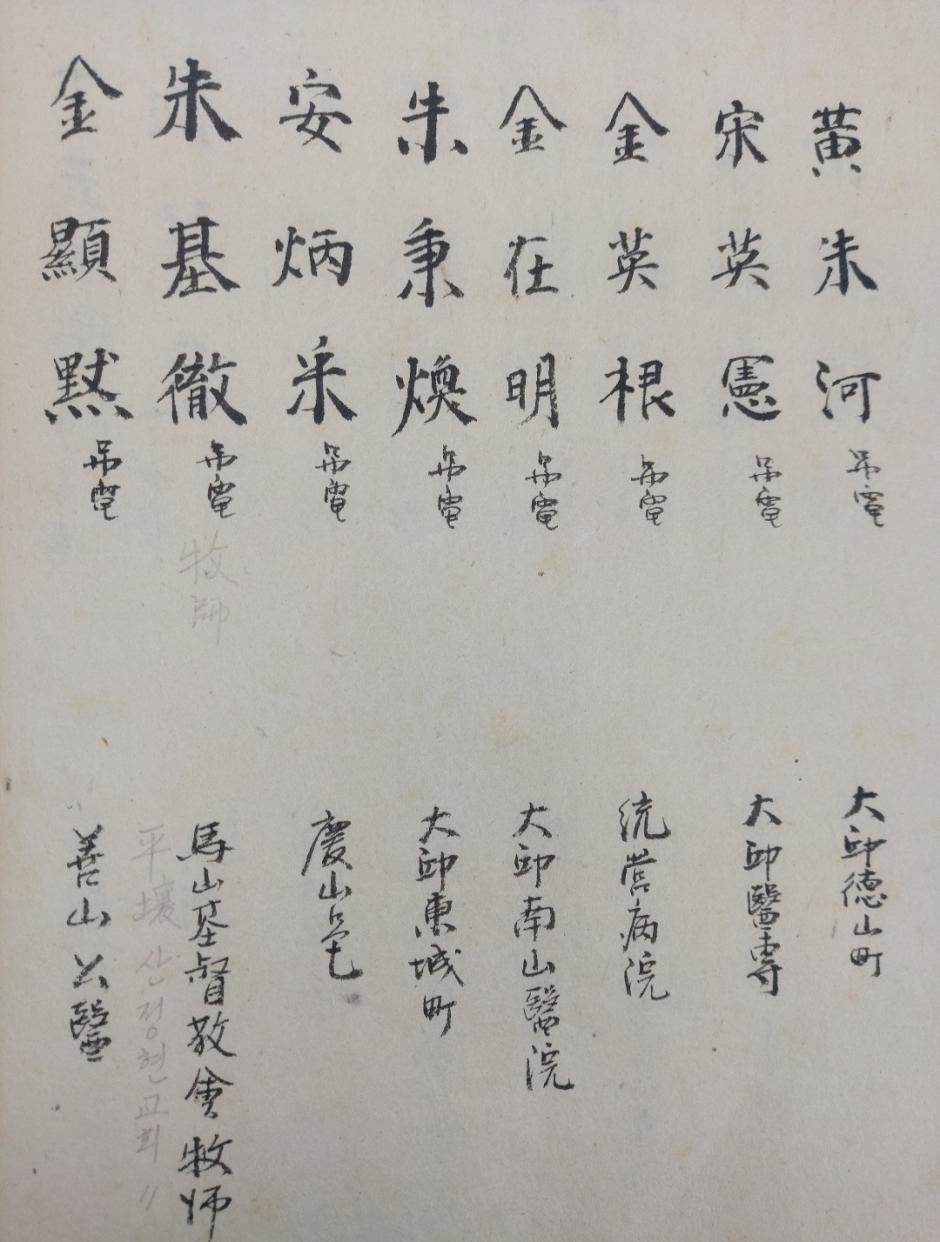 黃朱河 吊電 大邱德山町
宋英憲 吊電 大邱醫專
金英根 吊電 統營病院
金在明 吊電 大邱南山醫院
朱秉煥 吊電 大邱東城町
安炳采 吊電 慶山邑
朱基徹 吊電 牧師 馬山基督敎會牧师
平壤 산정현교회 〃
金顯黙 吊電 善山公醫